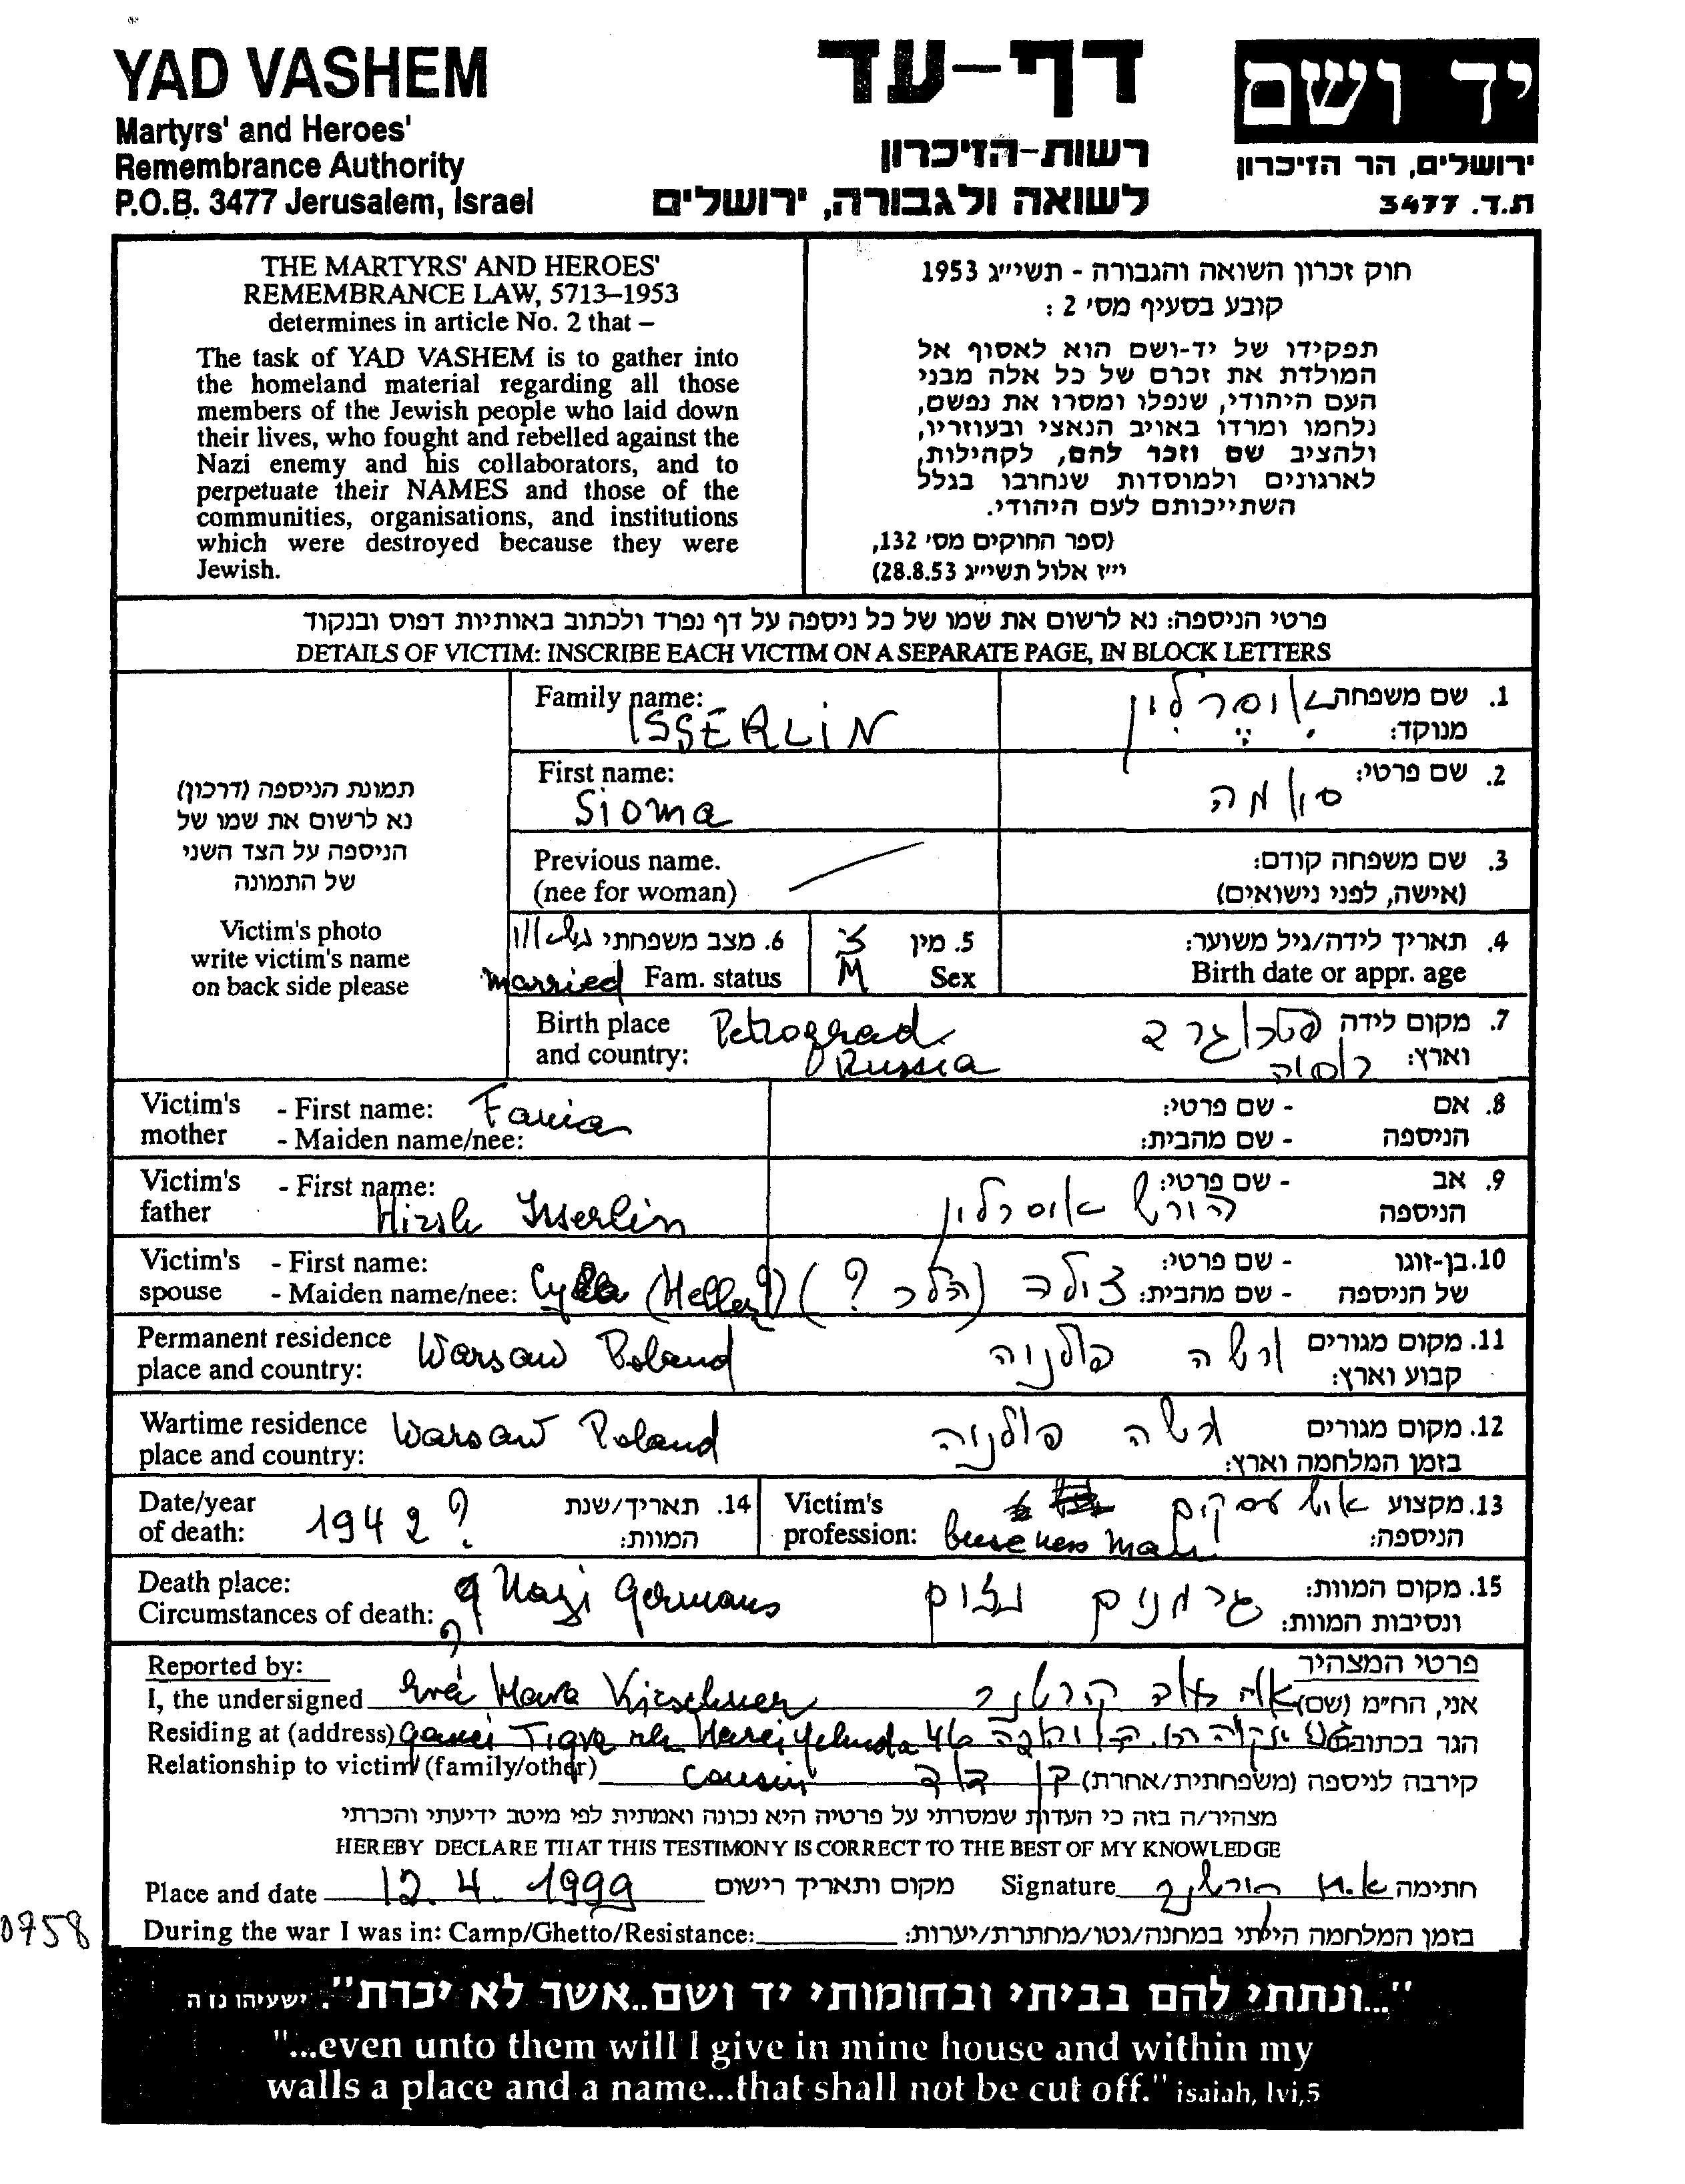 YAD VASHEM
Martyrs' and Heroes'
Remembrance Authority
P.O.B. 3477 Jerusalem, Israel
דף-עד
רשות-הזיכרון
לשואה ולגבורה, ירושלים
יד ושם
ירושלים, הר הזיכרון
ת.ד. 3477
THE MARTYRS' AND HEROES'
REMEMBRANCE LAW, 5713–1953
determines in article No. 2 that –
The task of YAD VASHEM is to gather into
the homeland material regarding all those
members of the Jewish people who laid down
their lives, who fought and rebelled against the
Nazi enemy and his collaborators, and to
perpetuate their NAMES and those of the
communities, organisations, and institutions
which were destroyed because they were
Jewish.
חוק זכרון השואה והגבורה - תשי״ג 1953
קובע בסעיף מס׳ 2 :
תפקידו של יד-ושם הוא לאסוף אל
המולדת את זכרם של כל אלה מבני
העם היהודי, שנפלו ומסרו את נפשם,
נלחמו ומרדו באויב הנאצי ובעוזריו,
ולהציב שם וזכר להם, לקהילות,
לארגונים ולמוסדות שנחרבו בגלל
השתייכותם לעם היהודי.
(ספר החוקים מס׳ 132,
י״ז אלול תשי״ג 28.8.53)
פרטי הניספה: נא לרשום את שמו של כל ניספה על דף נפרד ולכתוב באותיות דפוס ובנקוד
DETAILS OF VICTIM: INSCRIBE EACH VICTIM ON A SEPARATE PAGE, IN BLOCK LETTERS
תמונת הניספה (דרכון)
נא לרשום את שמו של
הניספה על הצד השני
של התמונה
Victim's photo
write victim's name
on back side please
Family name: ISSERLIN
1. שם משפחה מנוקד: איסרלין
First name: Sioma
2. שם פרטי: סיומה
Previous name.
(nee for woman)
3. שם משפחה קודם:
(אישה, לפני נישואים)
6. מצב משפחתי נשוי
married Fam. status
5. מין ז
M Sex
4. תאריך לידה/גיל משוער:
Birth date or appr. age
Birth place and country: Petrograd Russia
7. מקום לידה וארץ: פטרוגרד רוסיה
Victim's mother - First name: Fania
- Maiden name/nee:
8. אם הניספה - שם פרטי:
- שם מהבית:
Victim's father - First name: Hirsh Isserlin
9. אב הניספה - שם פרטי: הירש איסרלין
Victim's spouse - First name:
- Maiden name/nee: (Heller?)
10. בן-זוגו של הניספה - שם פרטי:
- שם מהבית: צילה (הלר ?)
Permanent residence place and country: Warsaw Poland
11. מקום מגורים קבוע וארץ: ורשה פולניה
Wartime residence place and country: Warsaw Poland
12. מקום מגורים בזמן המלחמה וארץ: ורשה פולניה
Date/year of death: 1942 ?
14. תאריך/שנת המוות:
Victim's profession: buseness man
13. מקצוע הניספה: איש עסקים
Death place:
Circumstances of death: ? Nazi Germans
15. מקום המוות:
ונסיבות המוות: גרמנים נצים
Reported by:
פרטי המצהיר
I, the undersigned Kirschner
אני, הח״מ (שם) קירשנר
Residing at (address) Ganei Tiqva 46
הגר בכתובת
Relationship to victim (family/other) cousin
קירבה לניספה (משפחתית/אחרת) בן דוד
מצהיר/ה בזה כי העדות שמסרתי על פרטיה היא נכונה ואמתית לפי מיטב ידיעתי והכרתי
HEREBY DECLARE THAT THIS TESTIMONY IS CORRECT TO THE BEST OF MY KNOWLEDGE
Place and date 12.4.1999 מקום ותאריך רישום
Signature קירשנר חתימה
During the war I was in: Camp/Ghetto/Resistance:
בזמן המלחמה הייתי במחנה/גטו/מחתרת/יערות:
0758
"...ונתתי להם בביתי ובחומותי יד ושם..אשר לא יכרת". ישעיהו נו ה
"...even unto them will I give in mine house and within my
walls a place and a name...that shall not be cut off." isaiah, lvi,5